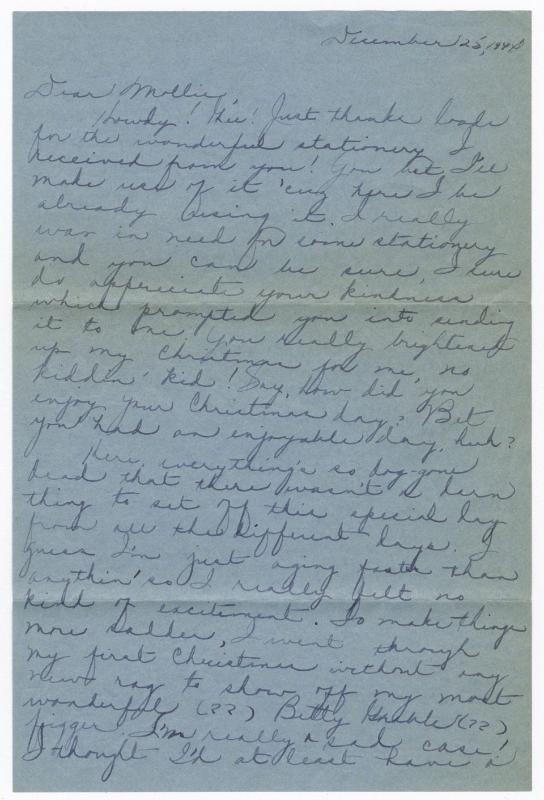 December 25, 1944
Dear Mollie,
Howdy! Hie! Just thanke loafs
for the wonderful stationery I
received from you! You bet I'll
make use of it 'cuz here I be
already using it. I really
was in need for some stationery
and you can be sure, I sure
do appreciate your kindness
which prompted you into sending
it to me. You really brightened
up my Christmas for me, no
kiddin' kid! Say, how did you
enjoy your Christmas day? Bet
you had an enjoyable day, huh?
Here, everything's so dog-gone
dead that there wasn't a darn
thing to set off this special day
from all the different days. I
guess I'm just aging faster than
anythin' so I really felt no
kind of excitement. To make things
more sadder, I went through
my first Christmas without any
new rag to show off my most
wonderful (??) Betty Grable (??)
figger. I'm really a sad case!
I thought I'd at least have a